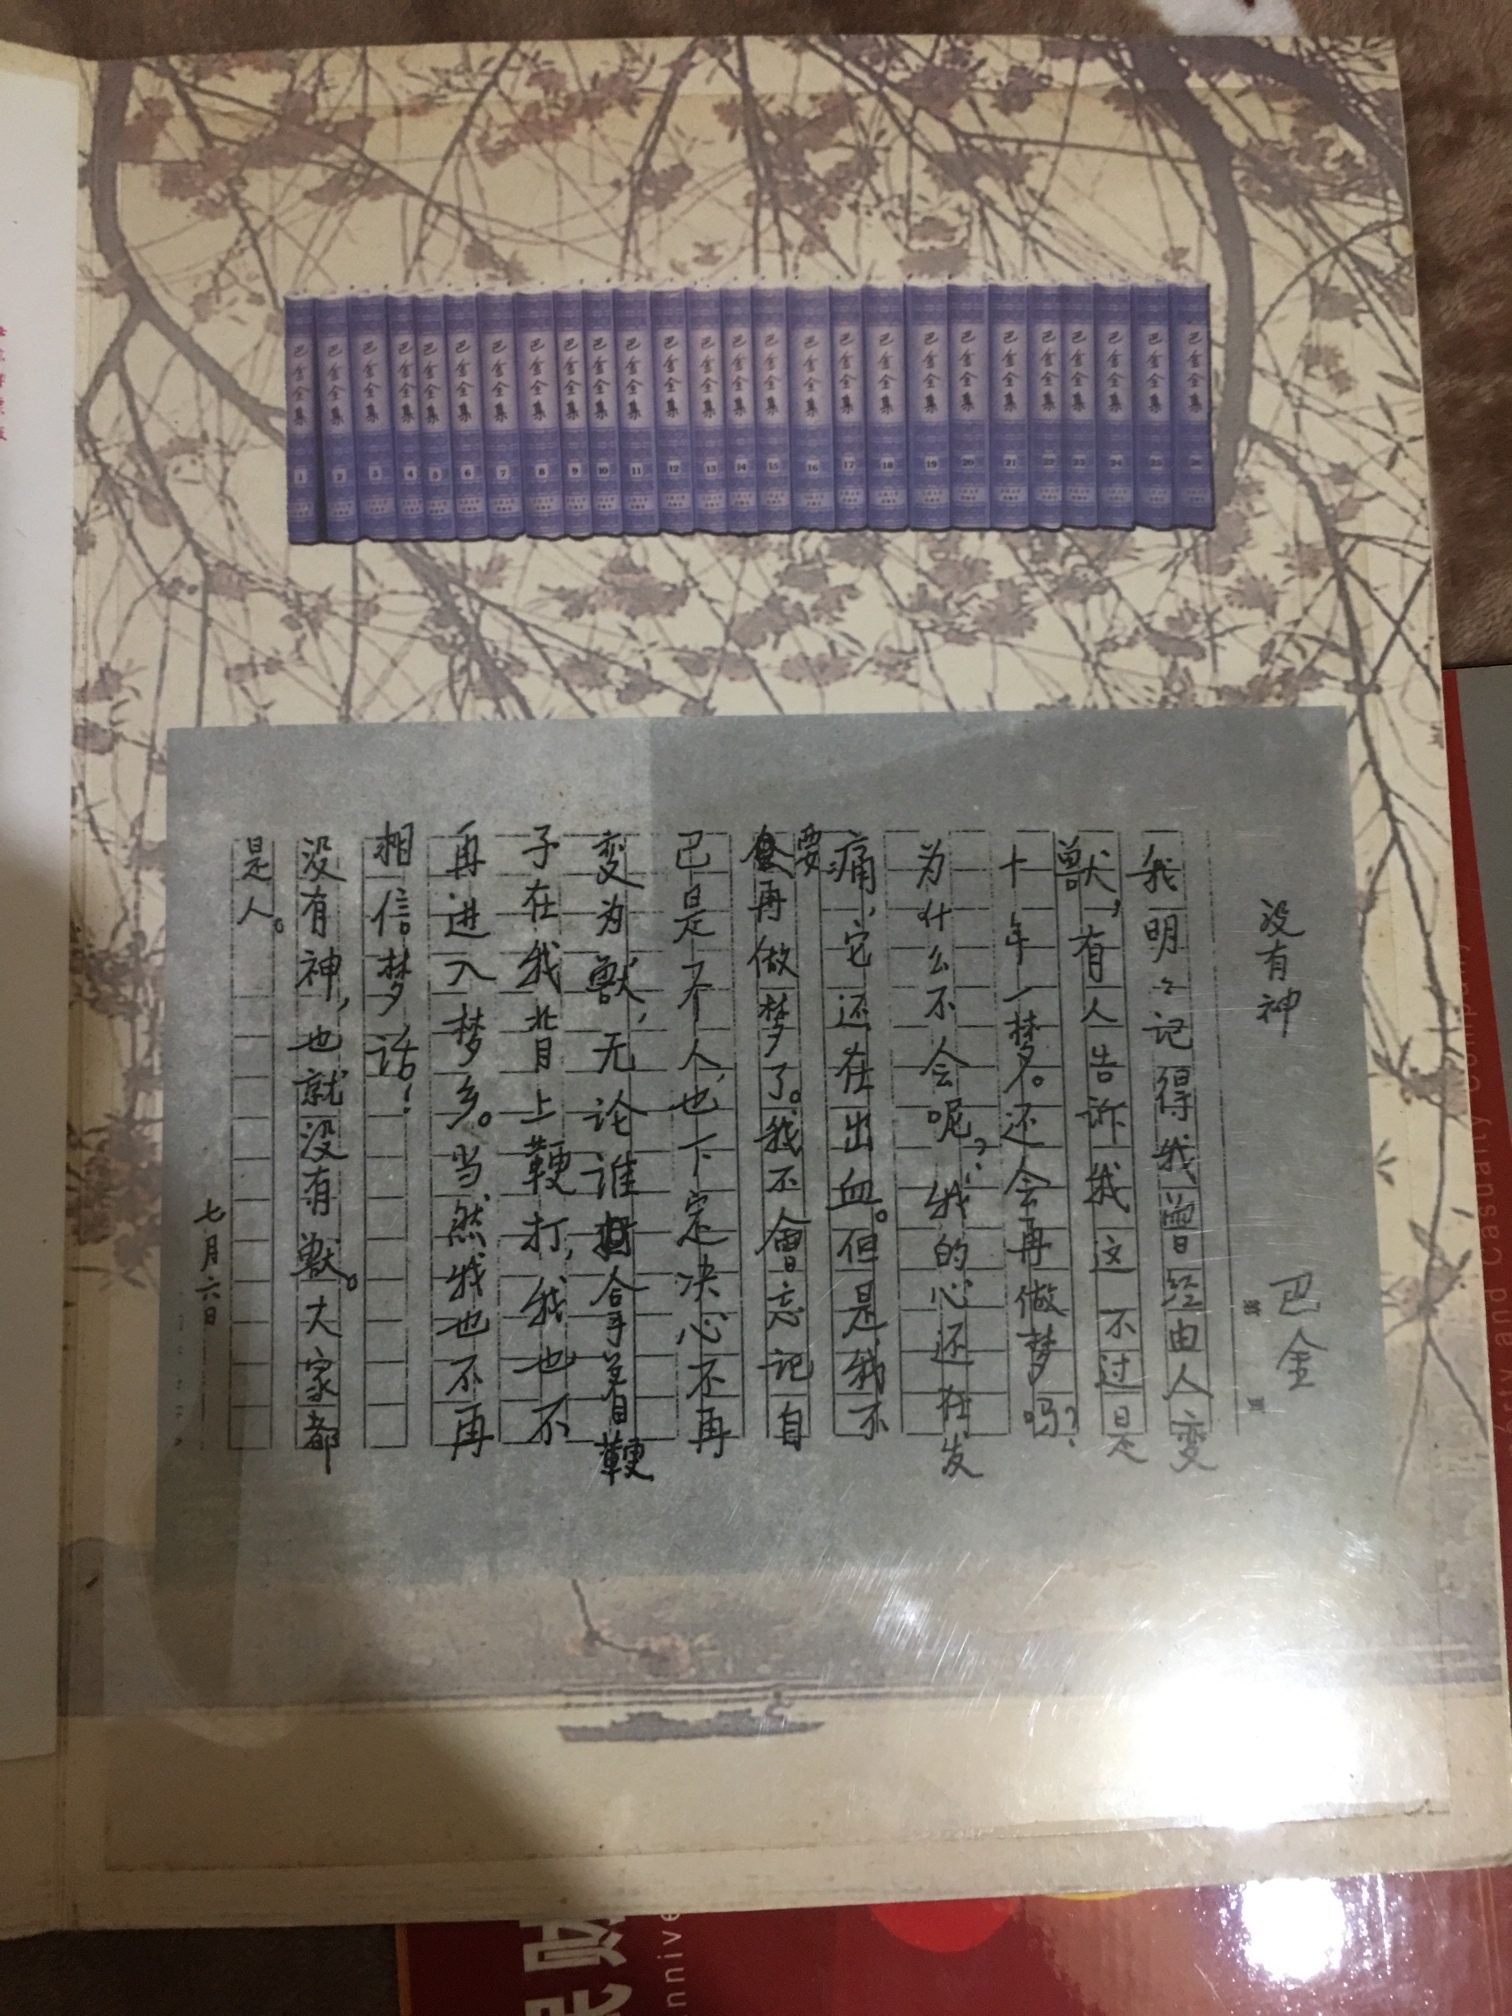 巴金全集 1
巴金全集 2
巴金全集 3
巴金全集 4
巴金全集 5
巴金全集 6
巴金全集 7
巴金全集 8
巴金全集 9
巴金全集 10
巴金全集 11
巴金全集 12
巴金全集 13
巴金全集 14
巴金全集 15
巴金全集 16
巴金全集 17
巴金全集 18
巴金全集 19
巴金全集 20
巴金全集 21
巴金全集 22
巴金全集 23
巴金全集 24
巴金全集 25
巴金全集 26
没有神 巴金
我明々记得我曾经由人变
獸,有人告诉我这不过是
十年一梦。还会再做梦吗?
为什么不会呢?我的心还在发
痛,它还在出血。但是我不
要再做梦了。我不會忘记自
己是个人,也下定决心不再
变为獸,无论谁拿着鞭
子在我背上鞭打,我也不
再进入梦乡。当然我也不再
相信梦话!
没有神,也就没有獸。大家都
是人。
七月六日
rty and Casualty Company
nnive